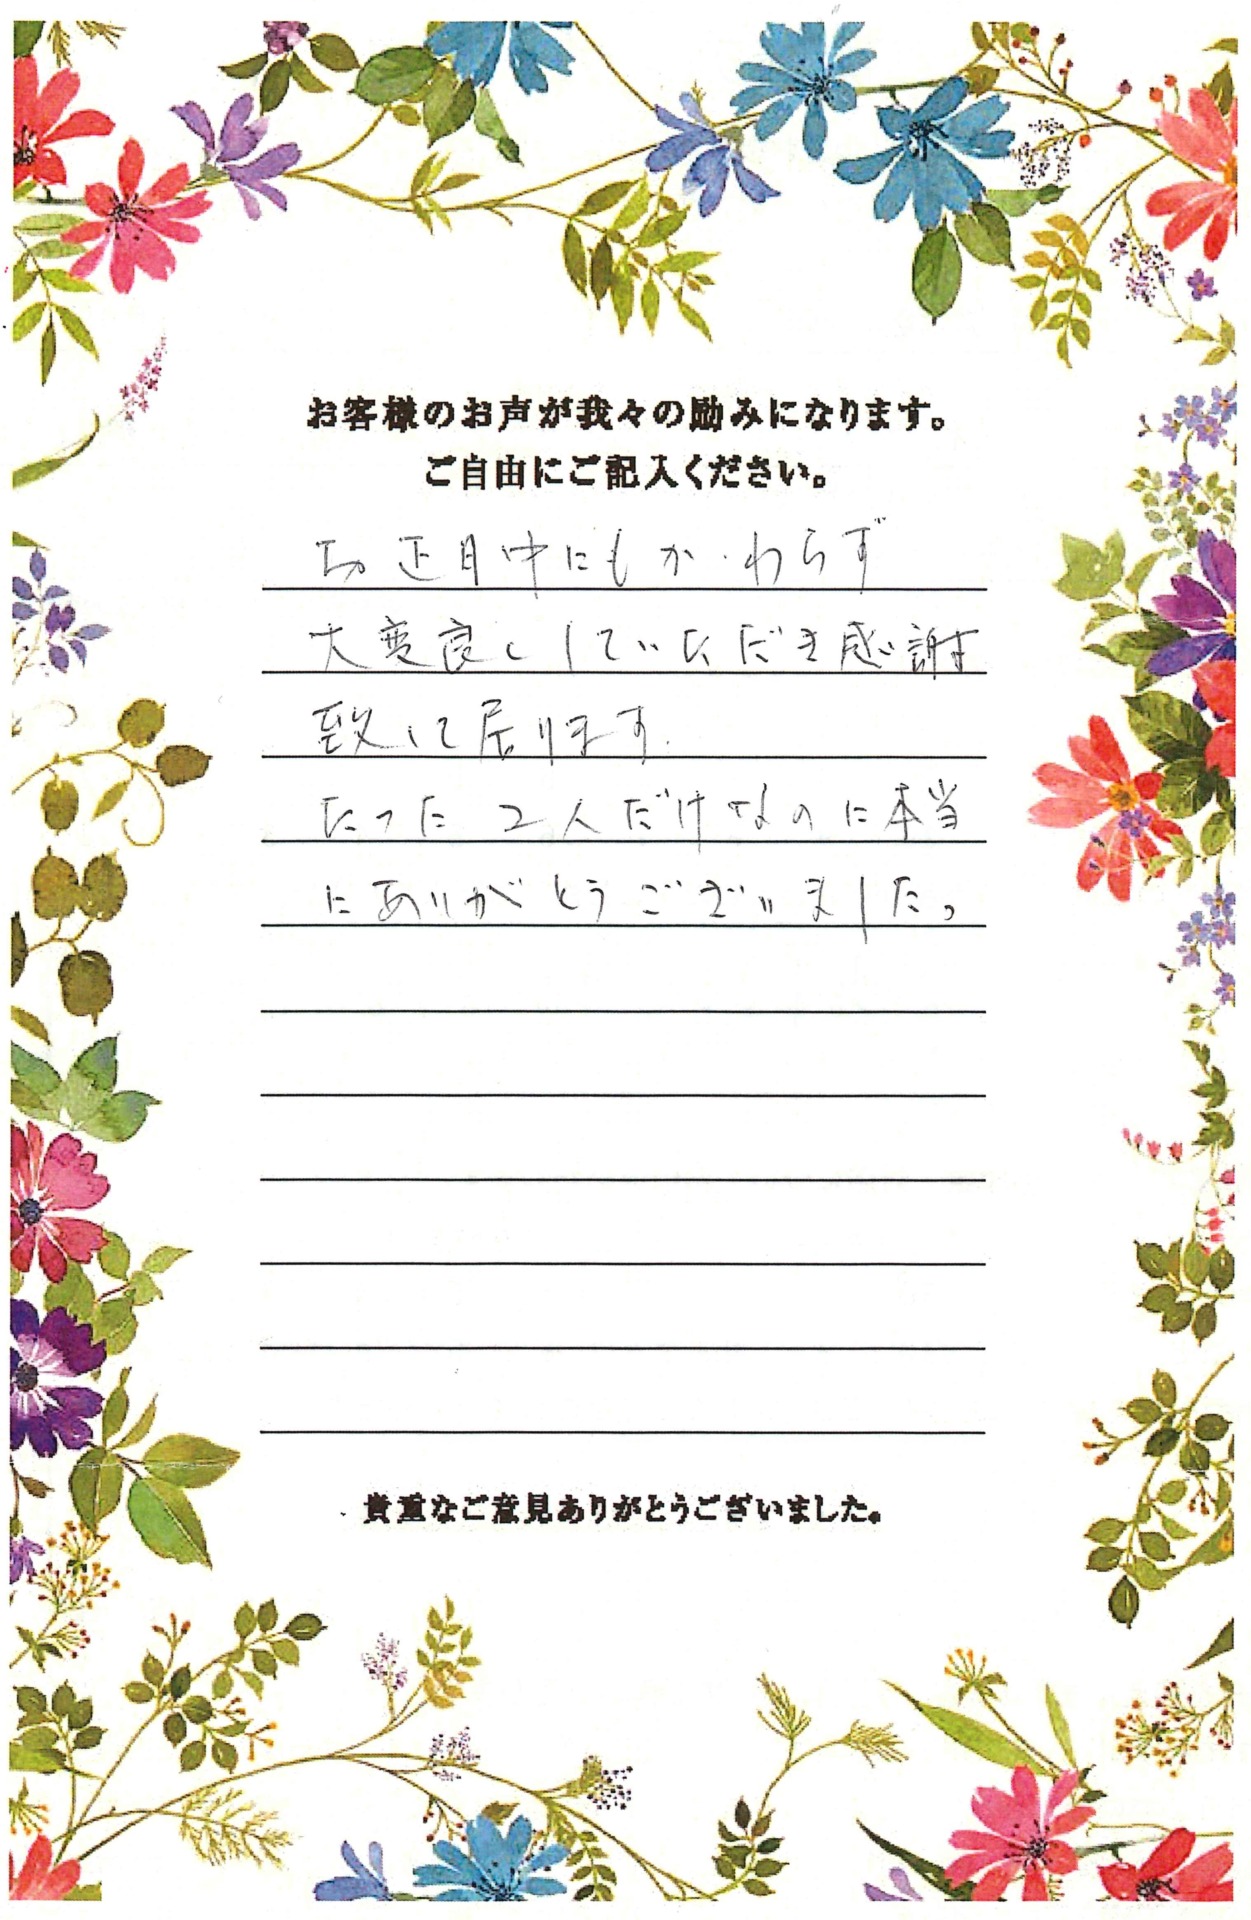 お客様のお声が我々の励みになります。
ご自由にご記入ください。
お正月中にもかゝわらず
大変良くしていただき感謝
致して居ります.
たった2人だけなのに本当
にありがとうございました。
貴重なご意見ありがとうございました。